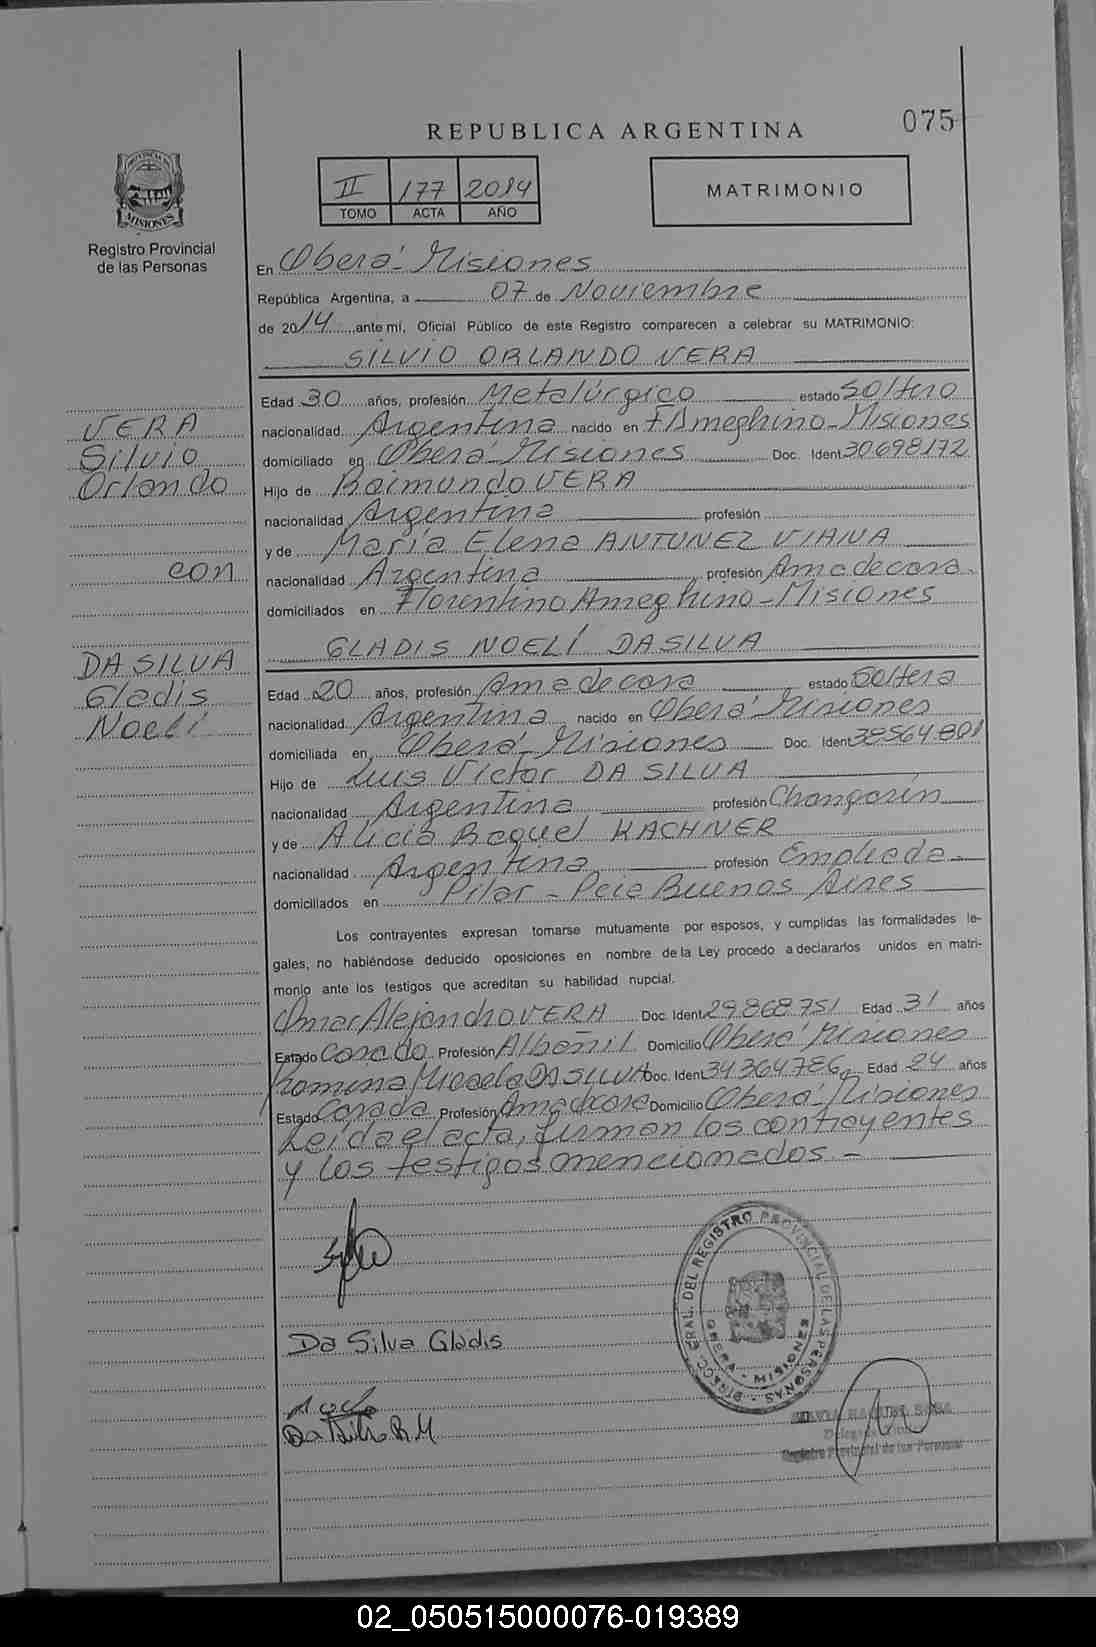 REPUBLICA ARGENTINA
075
II 177 2014
TOMO ACTA AÑO
MATRIMONIO
PROVINCIA DE
MISIONES
Registro Provincial
de las Personas
En Oberá - Misiones
República Argentina, a 07 de Noviembre
de 2014 ante mí, Oficial Público de este Registro comparecen a celebrar su MATRIMONIO:
SILVIO ORLANDO VERA
Edad 30 años, profesión Metalúrgico estado Soltero
nacionalidad Argentina nacido en F. Ameghino - Misiones
domiciliado en Oberá - Misiones Doc. Ident 30698172
Hijo de Raimundo VERA
nacionalidad Argentina profesión
y de María Elena ANTUNEZ VIANA
nacionalidad Argentina profesión Ama de casa
domiciliados en Florentino Ameghino - Misiones
VERA
Silvio
Orlando
con
DA SILVA
Gladis
Noelí
GLADIS NOELÍ DA SILVA
Edad 20 años, profesión Ama de casa estado Soltera
nacionalidad Argentina nacido en Oberá Misiones
domiciliada en Oberá - Misiones Doc. Ident 38564801
Hijo de Luis Victor DA SILVA
nacionalidad Argentina profesión Changarín
y de Alicia Raquel KACHNER
nacionalidad Argentina profesión Empleada
domiciliados en Pilar - Pcia Buenos Aires
Los contrayentes expresan tomarse mutuamente por esposos, y cumplidas las formalidades le-
gales, no habiéndose deducido oposiciones en nombre de la Ley procedo a declararlos unidos en matri-
monio ante los testigos que acreditan su habilidad nupcial.
Omar Alejandro VERA Doc. Ident 29.868.751 Edad 31 años
Estado Casado Profesión Albañil Domicilio Oberá Misiones
Romina Micaela DA SILVA Doc. Ident 34.364.786 Edad 24 años
Estado Casada Profesión Ama de casa Domicilio Oberá - Misiones
Leída el acta, firman los contrayentes
y los testigos mencionados -
Da Silva Gladis
Da Silva R.M
DIRECC. GRAL. DEL REGISTRO PROVINCIAL DE LAS PERSONAS
OBERA - MISIONES
Registro Provincial de las Personas
02_050515000076-019389